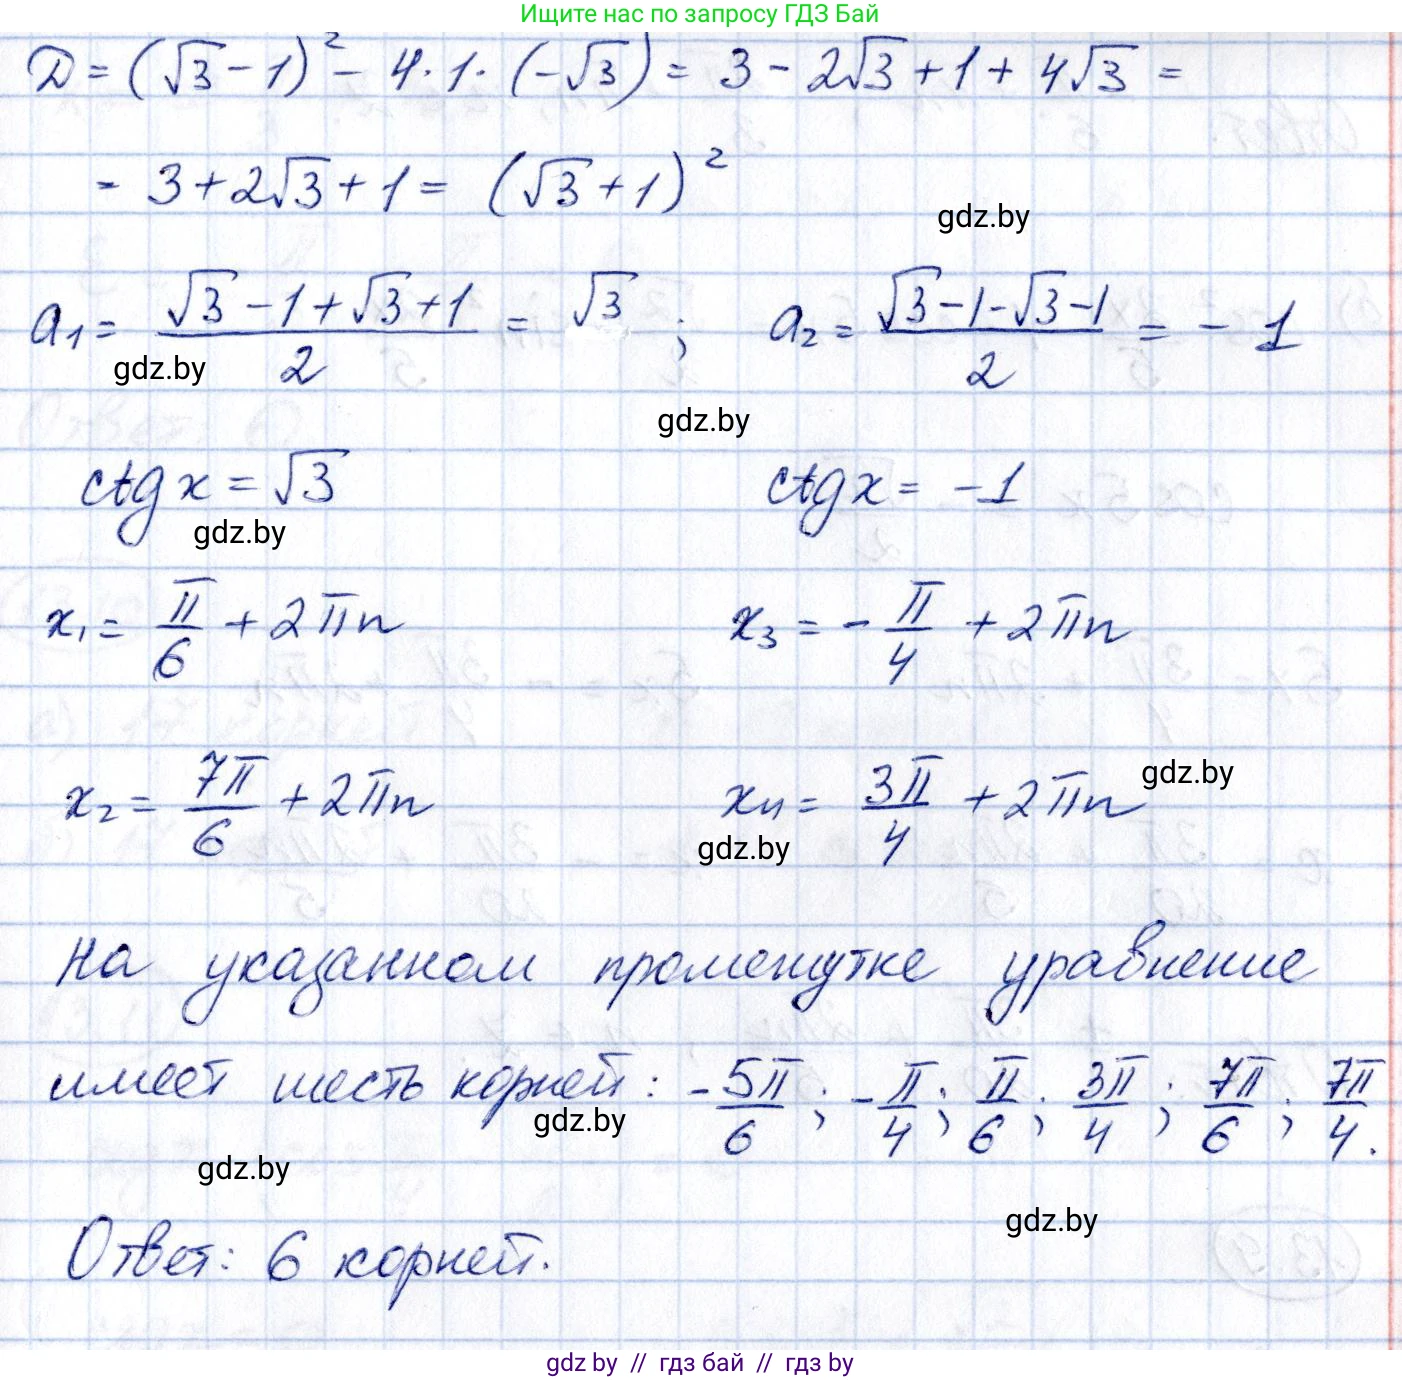 Ищите нас по запросу ГДЗ Бай
D = (√3 - 1)² - 4·1·(-√3) = 3 - 2√3 + 1 + 4√3 =
= 3 + 2√3 + 1 = (√3 + 1)²
gdz.by
a₁ = (√3 - 1 + √3 + 1)/2 = √3 ; a₂ = (√3 - 1 - √3 - 1)/2 = -1
gdz.by
gdz.by
ctg x = √3 ctg x = -1
gdz.by
x₁ = π/6 + 2πn x₃ = -π/4 + 2πn
x₂ = 7π/6 + 2πn x₄ = 3π/4 + 2πn
gdz.by
gdz.by
На указанном промежутке уравнение
имеет шесть корней: -5π/6; -π/4; π/6; 3π/4; 7π/6; 7π/4.
gdz.by
gdz.by
gdz.by
Ответ: 6 корней.
gdz by // гдз бай // гдз by